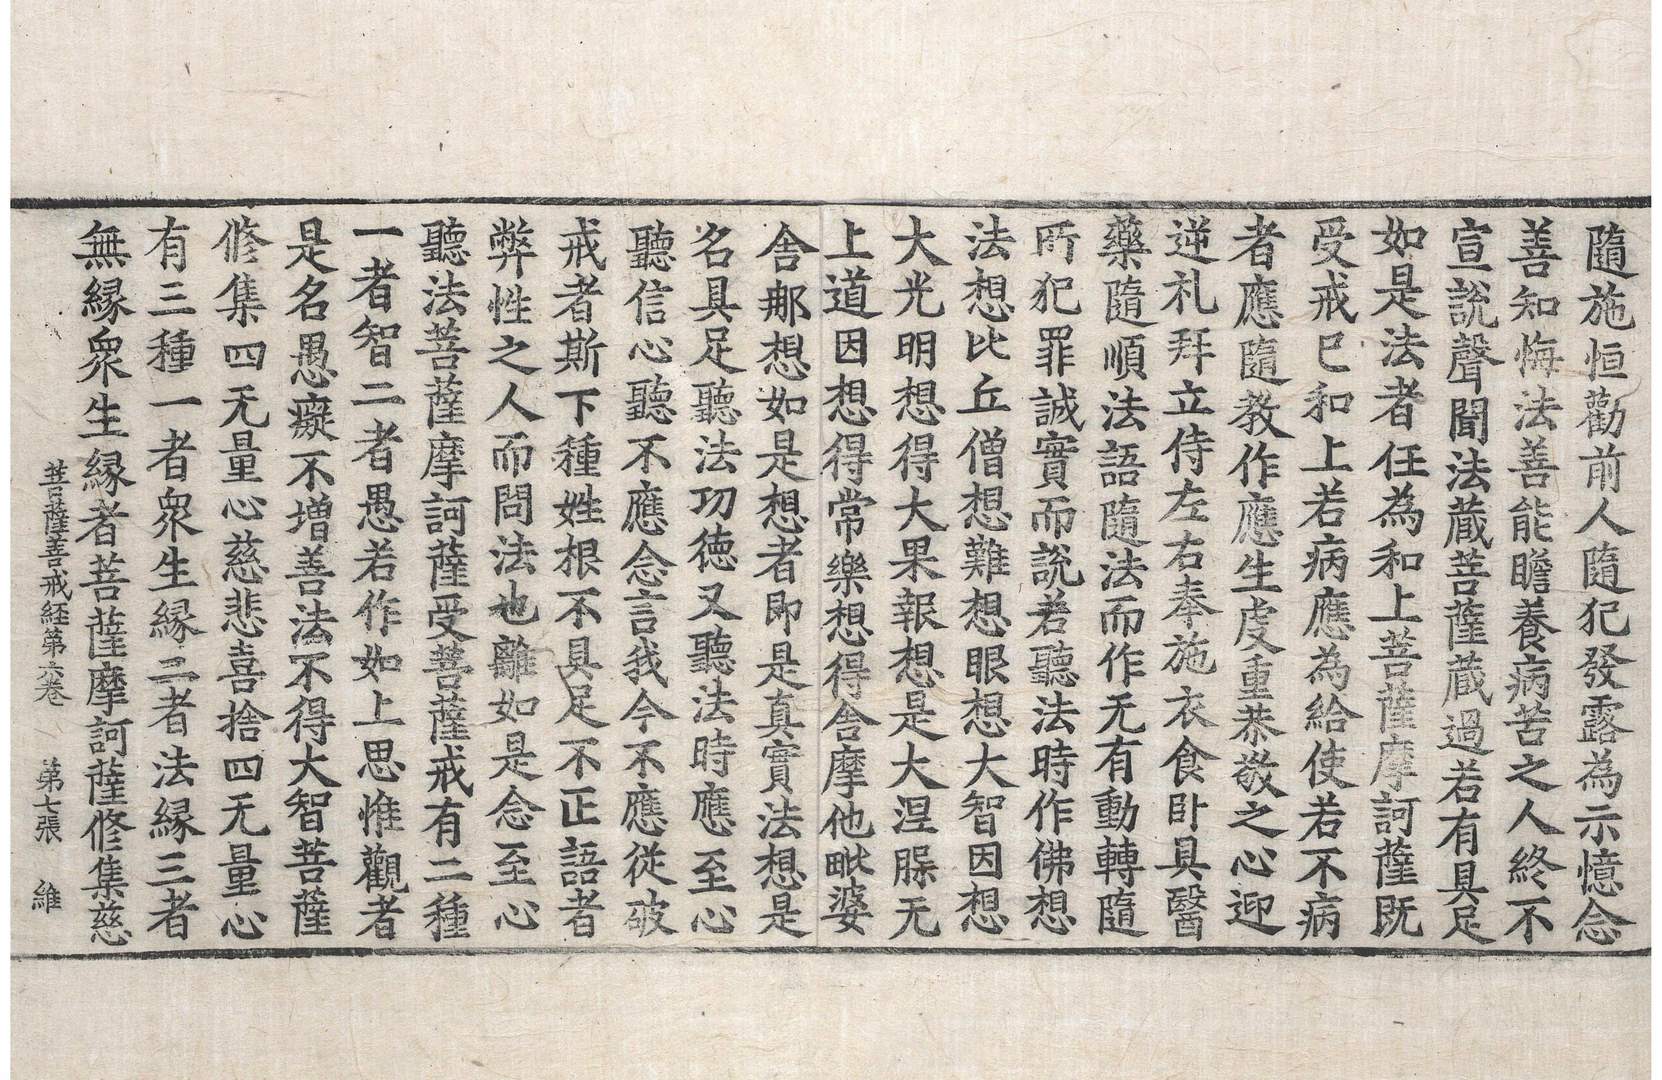 隨施恒勸前人隨犯發露為示憶念
善知悔法善能瞻養病苦之人終不
宣說聲聞法藏菩薩藏過若有具足
如是法者任為和上菩薩摩訶薩既
受戒已和上若病應為給使若不病
者應隨教作應生虔重恭敬之心迎
逆礼拜立侍左右奉施衣食卧具醫
藥隨順法語隨法而作无有動轉隨
所犯罪誠實而說若聽法時作佛想
法想比丘僧想難想眼想大智因想
大光明想得大果報想是大涅槃无
上道因想得常樂想得舍摩他毗婆
舍那想如是想者即是真實法想是
名具足聽法功德又聽法時應至心
聽信心聽不應念言我今不應從破
戒者斯下種姓根不具足不正語者
弊性之人而問法也離如是念至心
聽法菩薩摩訶薩受菩薩戒有二種
一者智二者愚若作如上思惟觀者
是名愚癡不增善法不得大智菩薩
修集四无量心慈悲喜捨四无量心
有三種一者衆生緣二者法緣三者
無緣衆生緣者菩薩摩訶薩修集慈
菩薩善戒経第六卷 第七張 維